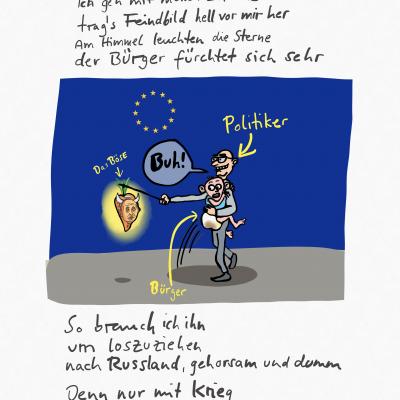 Ich geh mit
trag's Feindbild hell vor mir her
Am Himmel leuchten die Sterne
der Bürger fürchtet sich sehr
Politiker
Buh!
Das Böse
Bürger
So brauch ich ihn
um loszuziehen
nach Russland, gehorsam und dumm
Denn nur mit Krieg